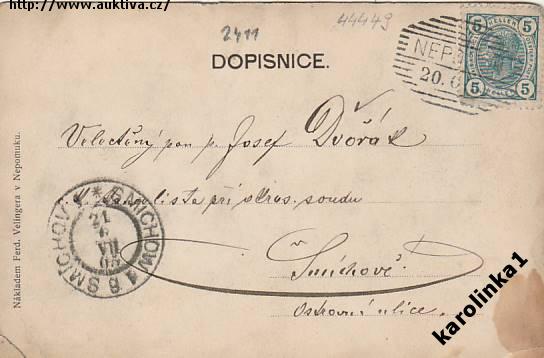 http://www.auktiva.cz/
2411
44449
DOPISNICE.
5 HELLER 5
5 5
NEP
20. 6
Veloctěný pan p. Josef Dvořák
při okres. soudu
Smíchově
Ostrovní ulice.
* SMICHOW 1 B SMÍCHOV 1
21
VII
Nákladem Ferd. Velingera v Nepomuku.
karolinka1